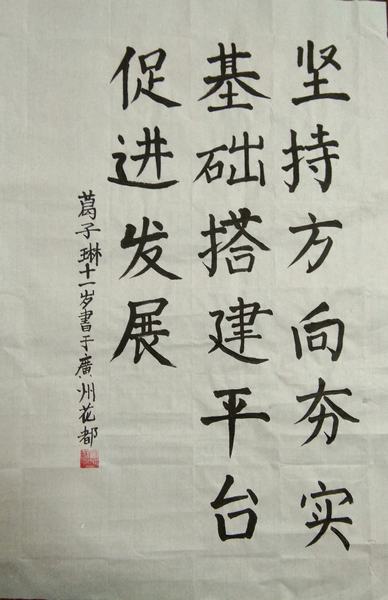 坚持方向夯实
基础搭建平台
促进发展
葛子琳十一岁書于廣州花都